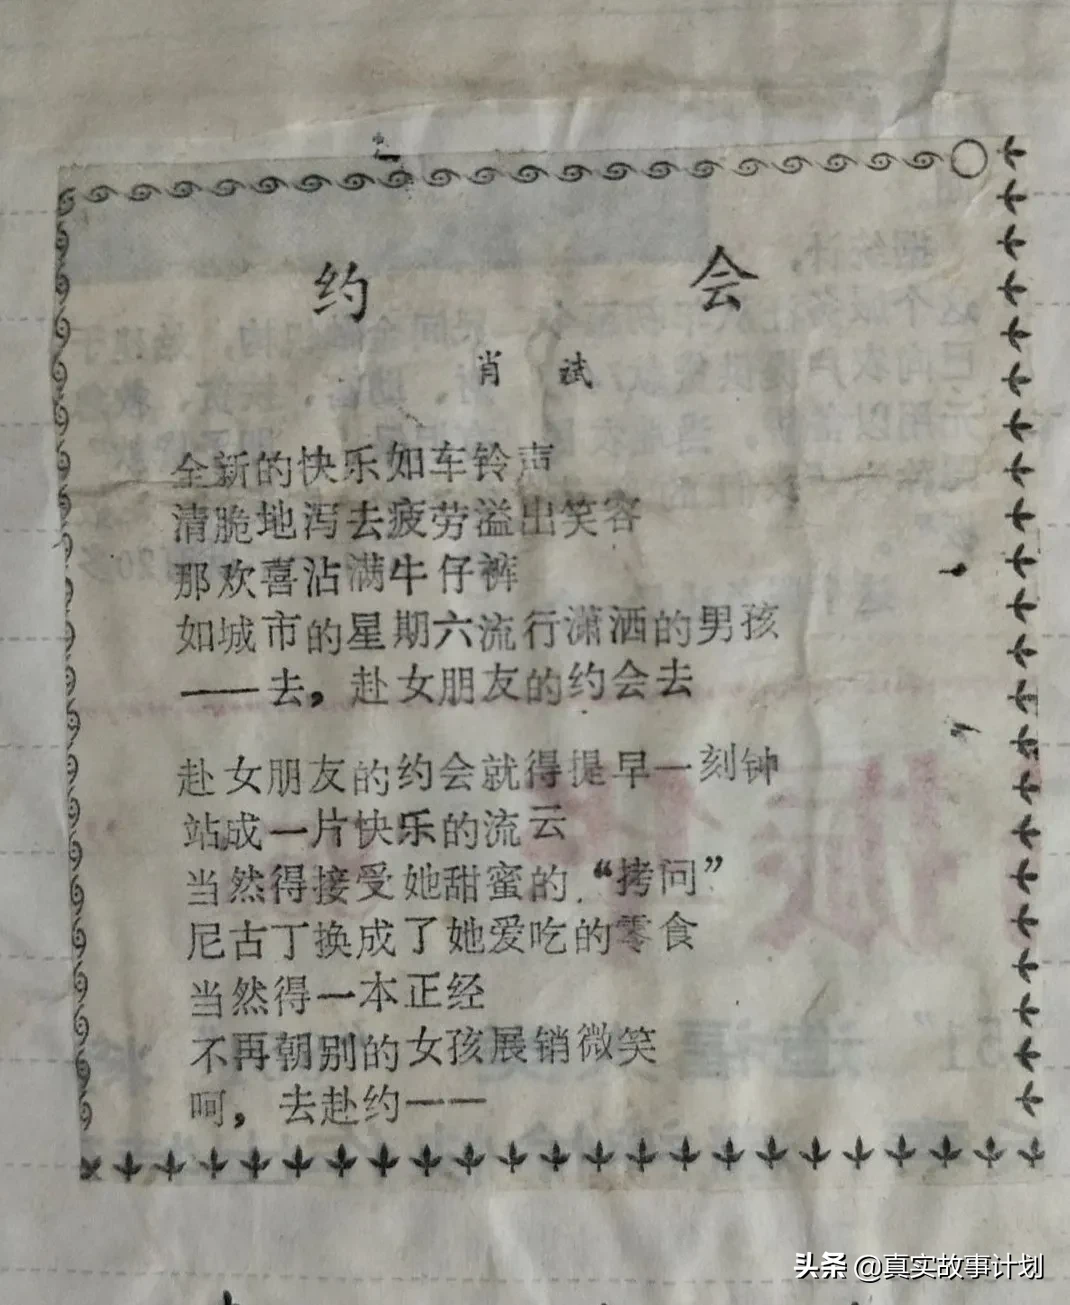 约会
肖斌
全新的快乐如车铃声
清脆地泻去疲劳溢出笑容
那欢喜沾满牛仔裤
如城市的星期六流行潇洒的男孩
——去，赴女朋友的约会去
赴女朋友的约会就得提早一刻钟
站成一片快乐的流云
当然得接受她甜蜜的“拷问”
尼古丁换成了她爱吃的零食
当然得一本正经
不再朝别的女孩展销微笑
呵，去赴约——
头条 @真实故事计划